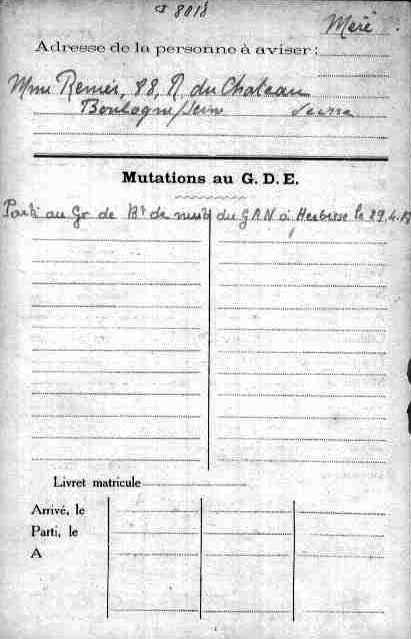 8018
Méré
Adresse de la personne à aviser :
Mme Remier, 88, R du Chateau
Boulogne/Seine Seine
Mutations au G. D. E.
Parti au Gr de Bt de nuit du GAN à Herbisse le 29.4.18
Livret matricule
Arrivé, le
Parti, le
A